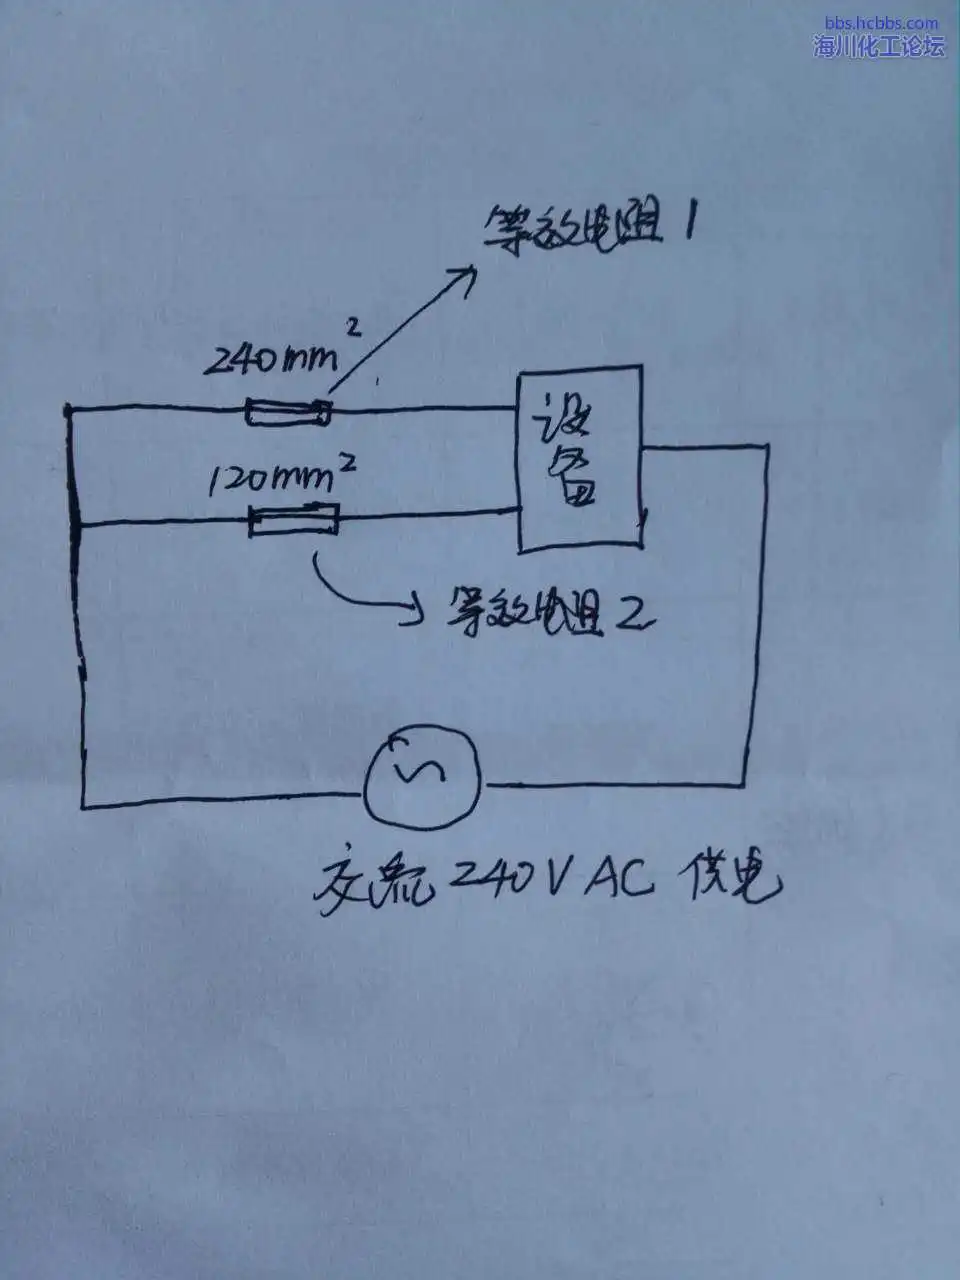 bbs.hcbbs.com
海川化工论坛
等效电阻1
240mm²
设
备
120mm²
等效电阻2
交流240V AC 供电